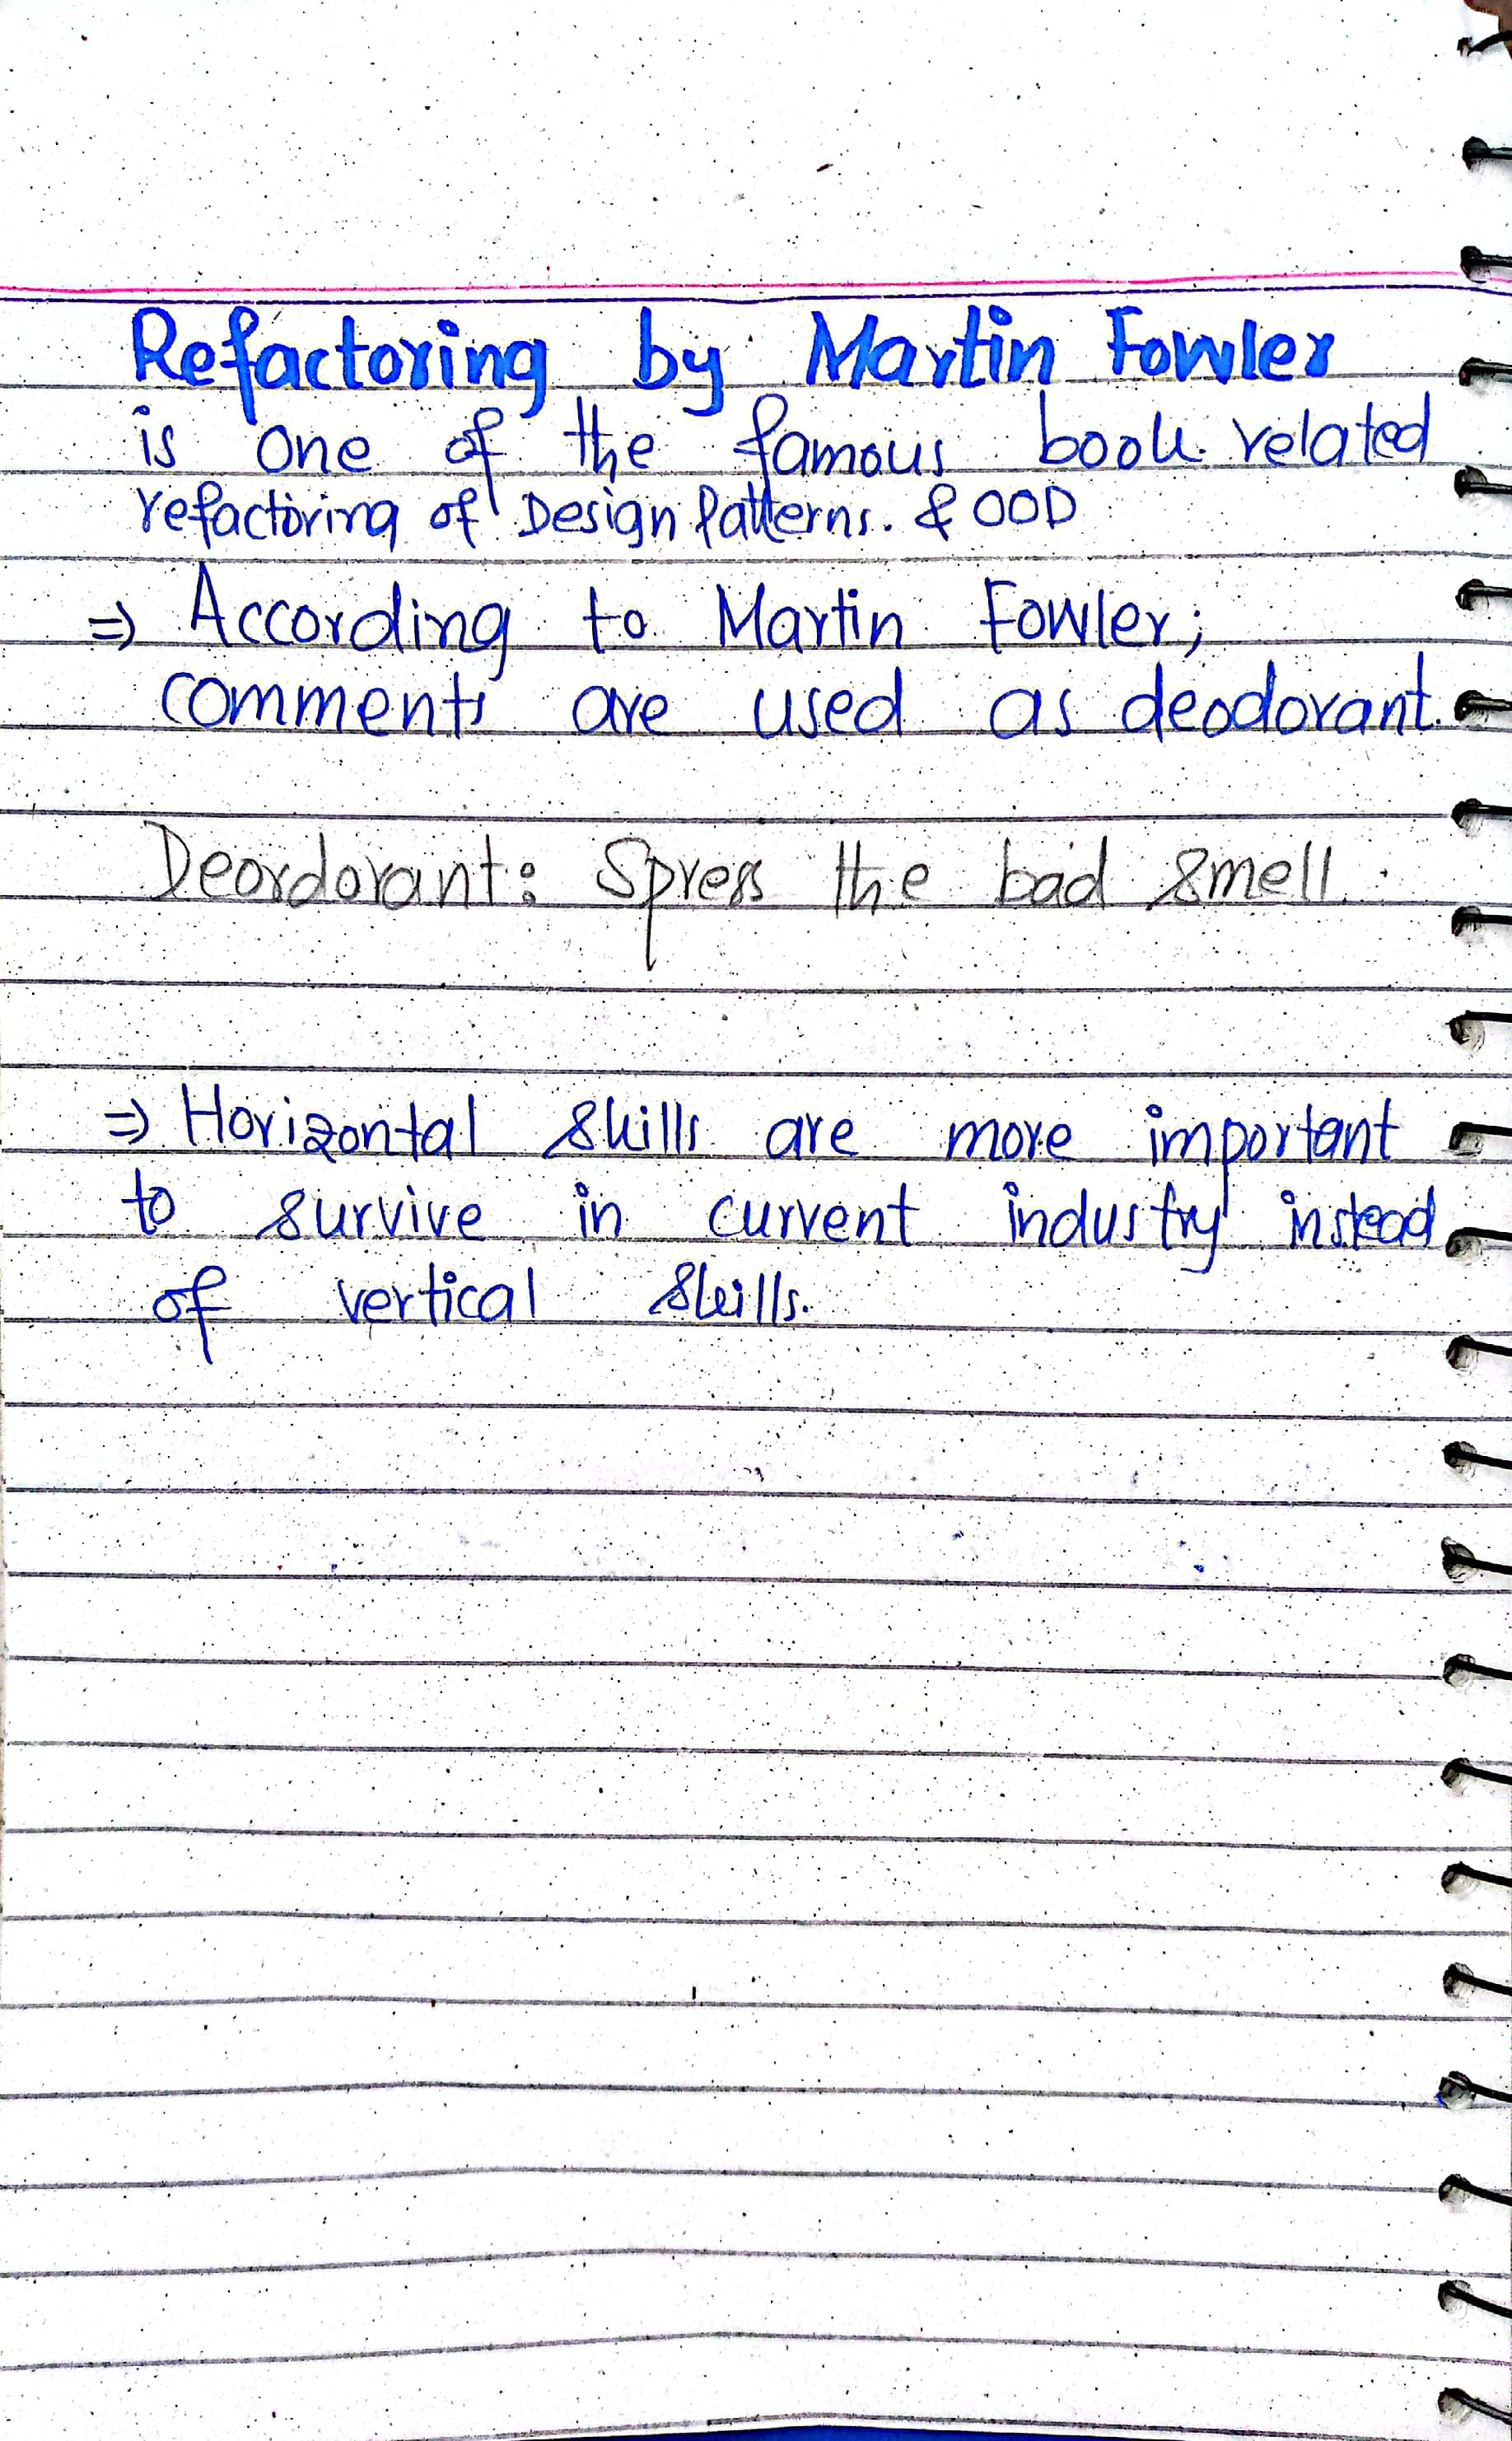 Refactoring by Martin Fowler
is one of the famous book related
refactoring of Design Patterns. & OOD
⇒ According to Martin Fowler;
comments are used as deodorant.
Deordorant: Spress the bad smell.
⇒ Horizontal skills are more important
to survive in current industry instead
of vertical skills.